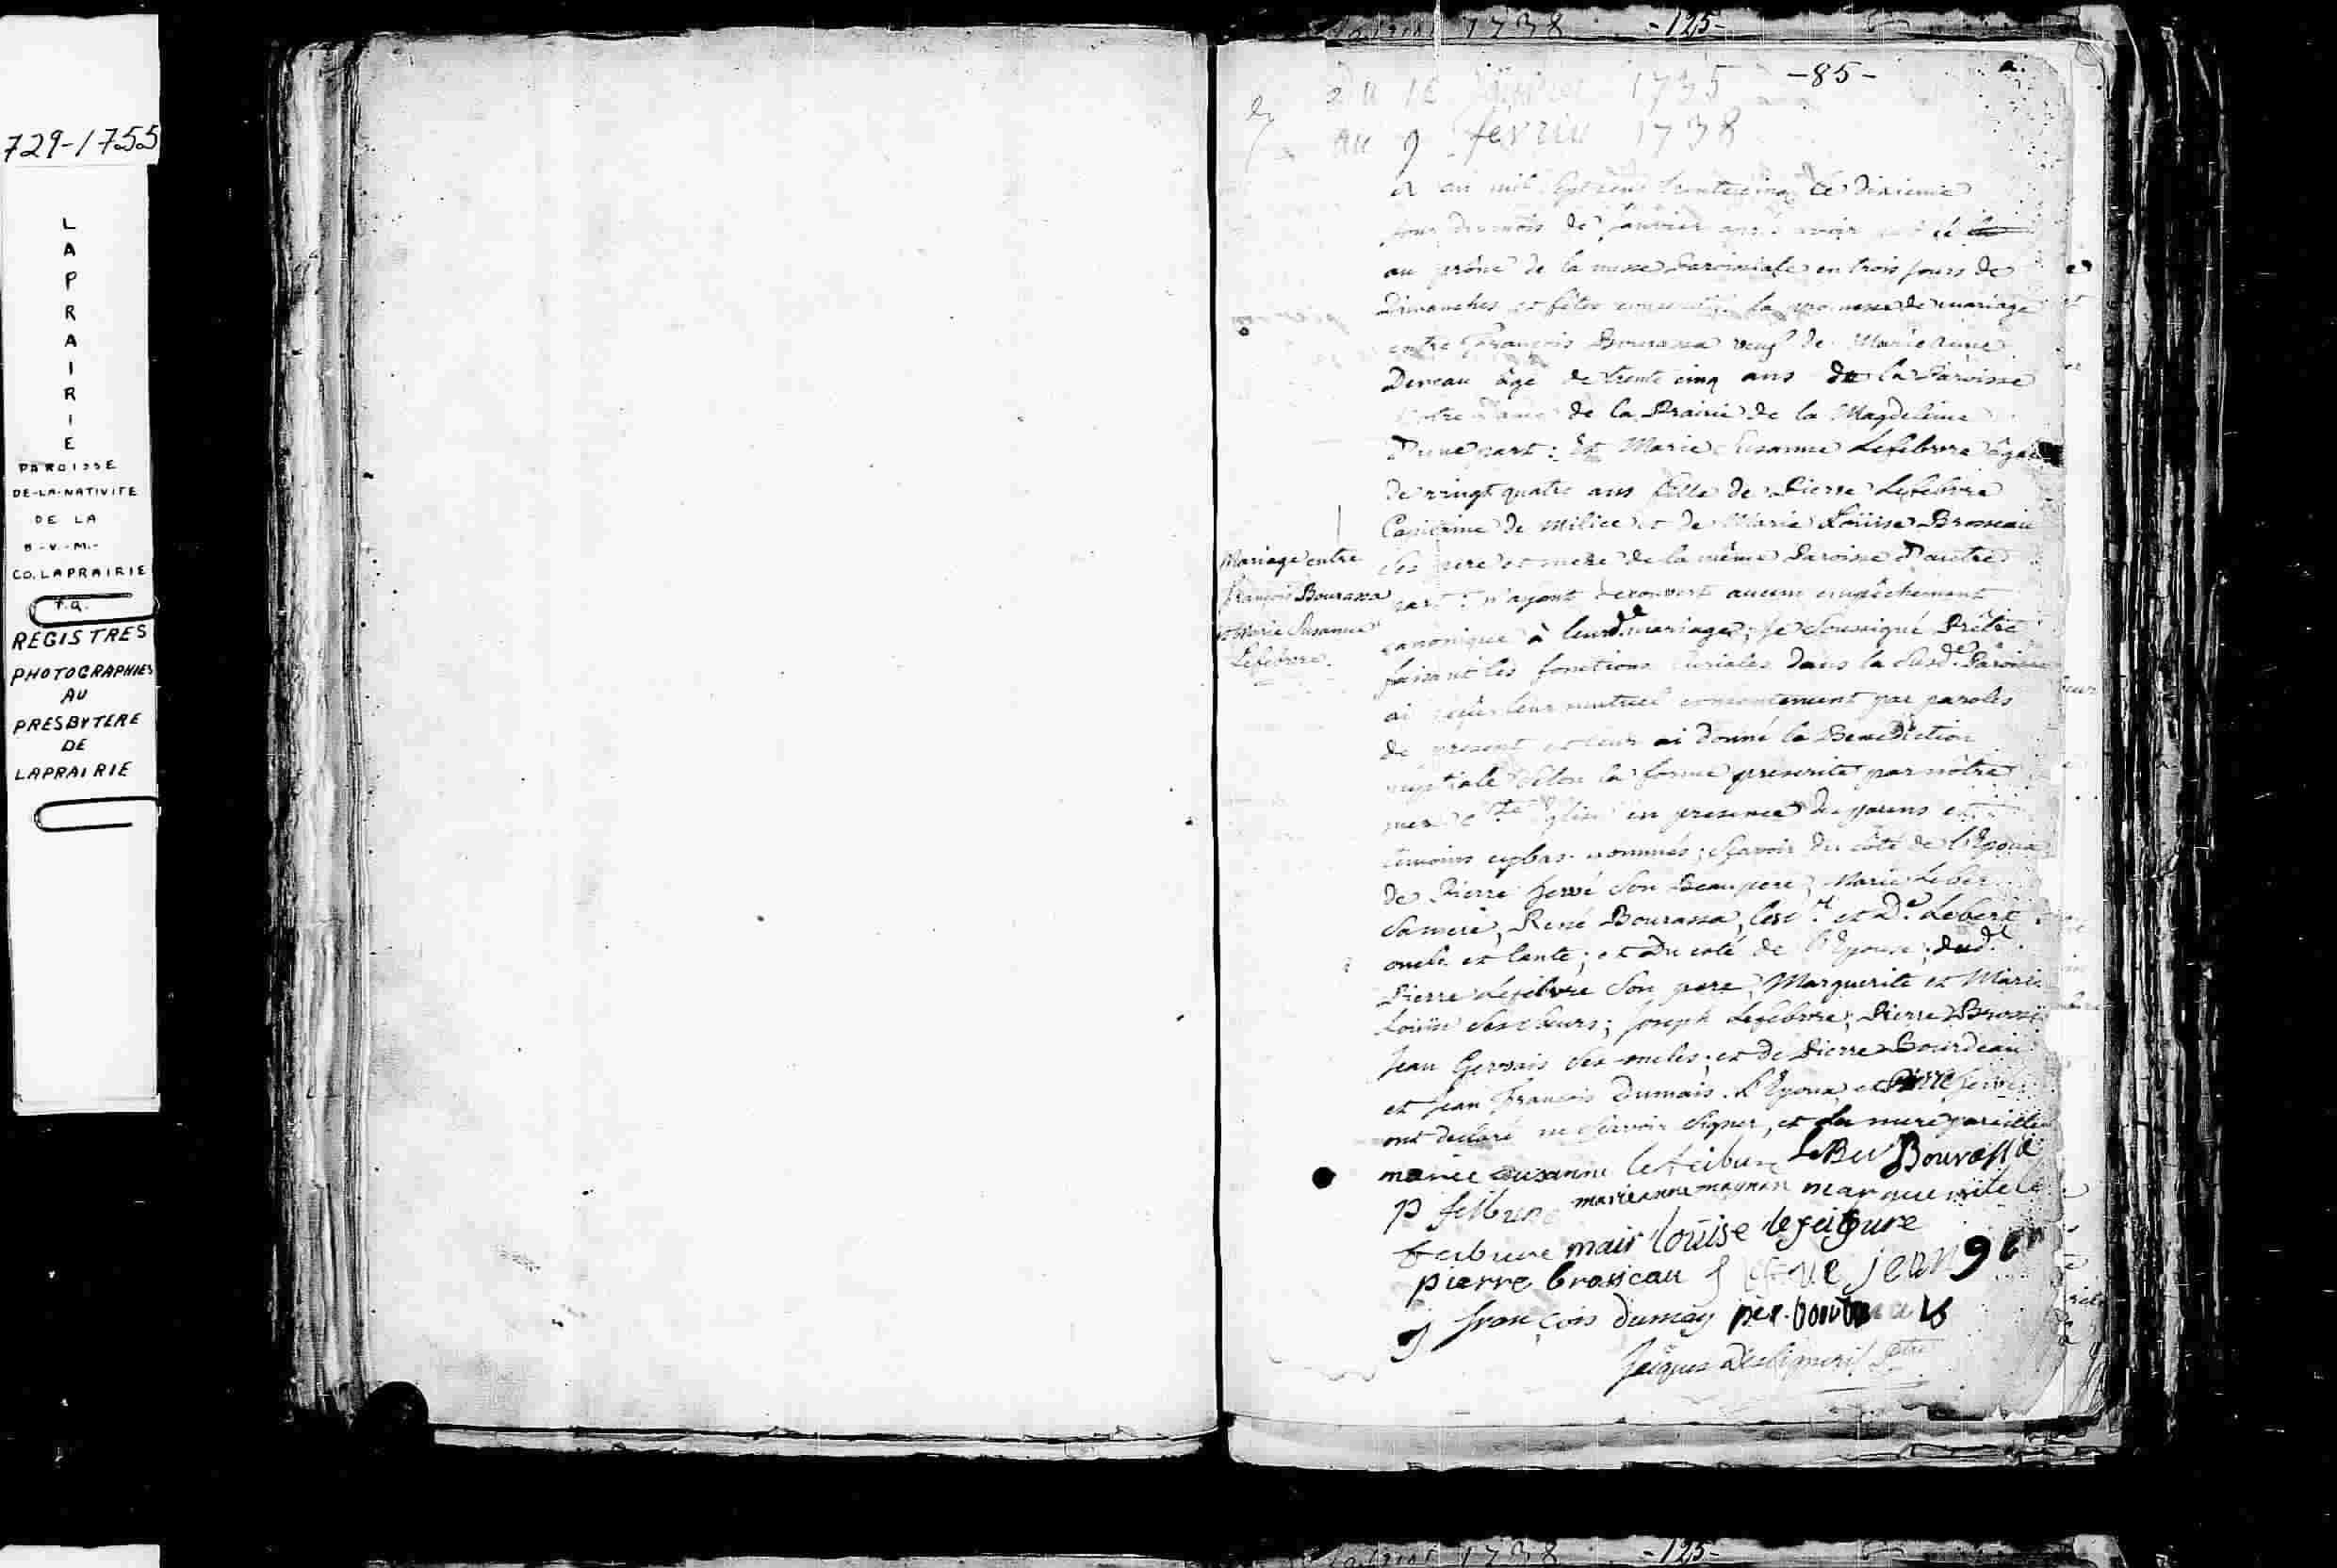 729-1755
LAPRAIRIE
PAROISSE
DE-LA-NATIVITE
DE LA
B.-V.-M.-
CO. LAPRAIRIE
P.Q.
REGISTRES
PHOTOGRAPHIES
AU
PRESBYTERE
DE
LAPRAIRIE
1738 -125-
-85-
Du 10 janvier 1735
au 9 février 1738
an mil Sept cens trente cinq le dixieme
jour du mois de Janvier après avoir
au prône de la messe Paroissiale en trois jours de
Dimanches et fêtes la promesse de mariage
entre François Bourassa veuf de Marie Anne
Deneau âgé de trente cinq ans de la Paroisse
Notre Dame de la Prairie de la Magdeleine
D'une part : Et Marie Susanne Lefebvre âgée
de vingt quatre ans fille de Pierre Lefebvre
Capitaine de Milice et de Marie Loüise Brosseau
Ses pere et mere de la même Paroisse D'autre
part : n'ayant decouvert aucun empêchement
canonique à leurd. mariage ; Je Soussigné Prêtre
faisant les fonctions Curiales dans la Susd.e Paroisse
ai reçu leur mutuel consentement par paroles
de present et leur ai donné la Benediction
nuptiale Selon la forme prescrite par nôtre
mere Ste Eglise en presence des parens et
temoins cy bas nommés ; Sçavoir du côté de l'Epoux
de Pierre Hervé Son Beaupere, Marie Leber
Sa mere, René Bourassa, Les Sr. et De. Lebert
oncle et tante ; et Du coté de l'Epouse ; dud.t
Pierre Lefebvre Son pere, Marguerite et Marie
Loüise Ses Sœurs ; Joseph Lefebvre ; Pierre Brosseau
Jean Gervais Ses oncles ; et de Pierre Bourdeau
et Jean François Dumais. L'Epoux et Pierre Hervé
ont declaré ne Sçavoir Signer, et La mere pareillem
Mariage entre
François Bourassa
et Marie Susanne
Lefebvre.
marie susanne lefeibure LeBer Bourassa
p fefbure marieanne magnan marguerite le
feibure mari loüise lefeibure
pierre brosseau jean ger
j françois dumay
Jacques Desligneris Ptre